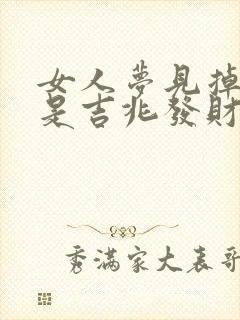 女人夢見掉
是吉兆發財
秀滿家大表哥